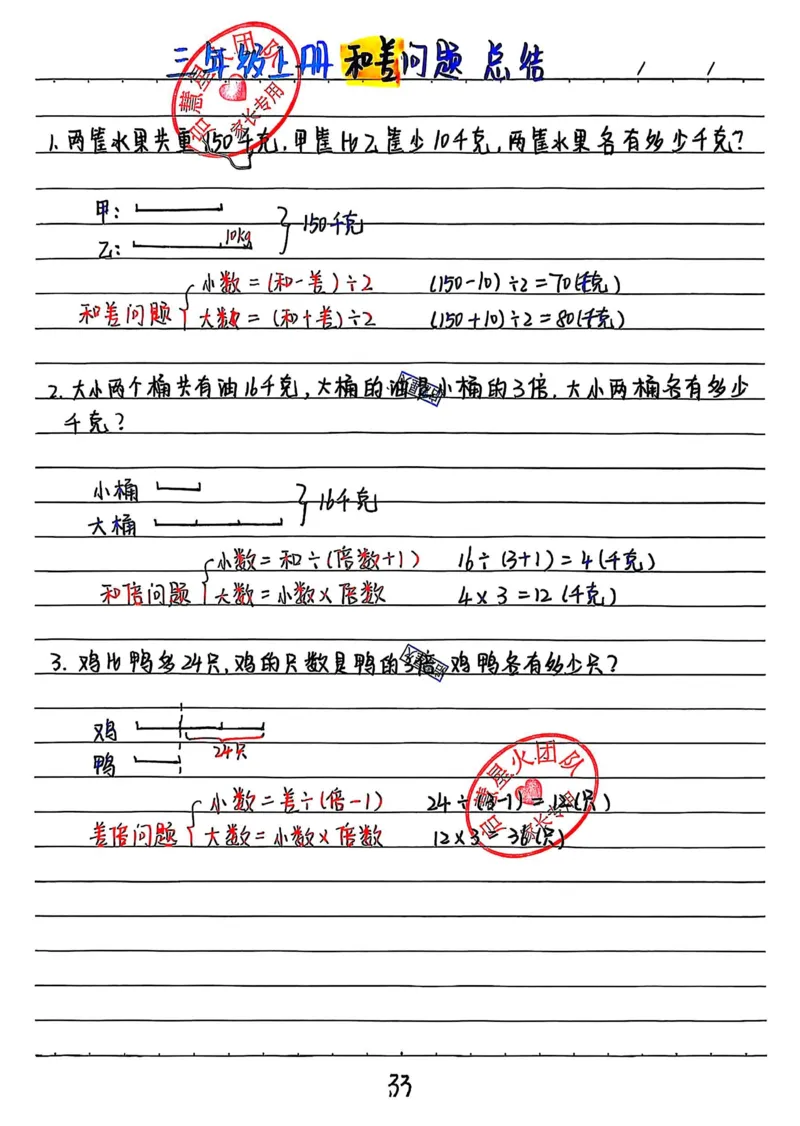 三年级上册 和差问题 总结 / /
1. 两筐水果共重150千克, 甲筐比乙筐少10千克, 两筐水果各有多少千克?
甲:
150千克
乙: 10kg
小数 = (和-差)÷2 (150-10)÷2=70(千克)
和差问题
大数 = (和+差)÷2 (150+10)÷2=80(千克)
2. 大小两个桶共有油16千克, 大桶的油是小桶的3倍. 大小两桶各有多少
千克?
小桶
16千克
大桶
小数 = 和÷(倍数+1) 16÷(3+1)=4(千克)
和倍问题
大数 = 小数×倍数 4×3=12(千克)
3. 鸡比鸭多24只, 鸡的只数是鸭的3倍, 鸡鸭各有多少只?
鸡
24只
鸭
小数 = 差÷(倍-1) 24÷(3-1)=12(只)
差倍问题
大数 = 小数×倍数 12×3=36(只)
启慧星火团队
家长专用
启慧星火团队
家长专用
33